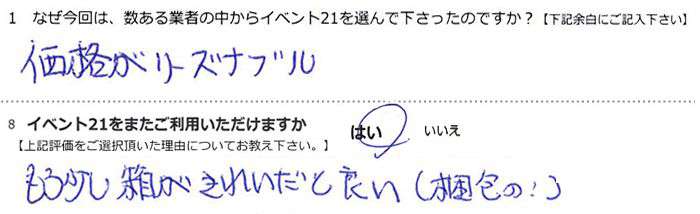 1 なぜ今回は、数ある業者の中からイベント21を選んで下さったのですか？【下記余白にご記入下さい】
価格がリーズナブル
8 イベント21をまたご利用いただけますか はい いいえ
【上記評価をご選択頂いた理由についてお教え下さい。】
もう少し箱がきれいだと良い(梱包の!)